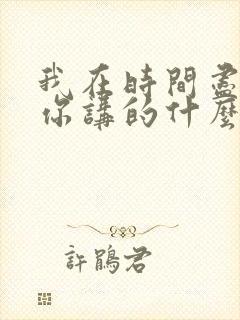 我在時間盡
你講的什麼
許鵑君